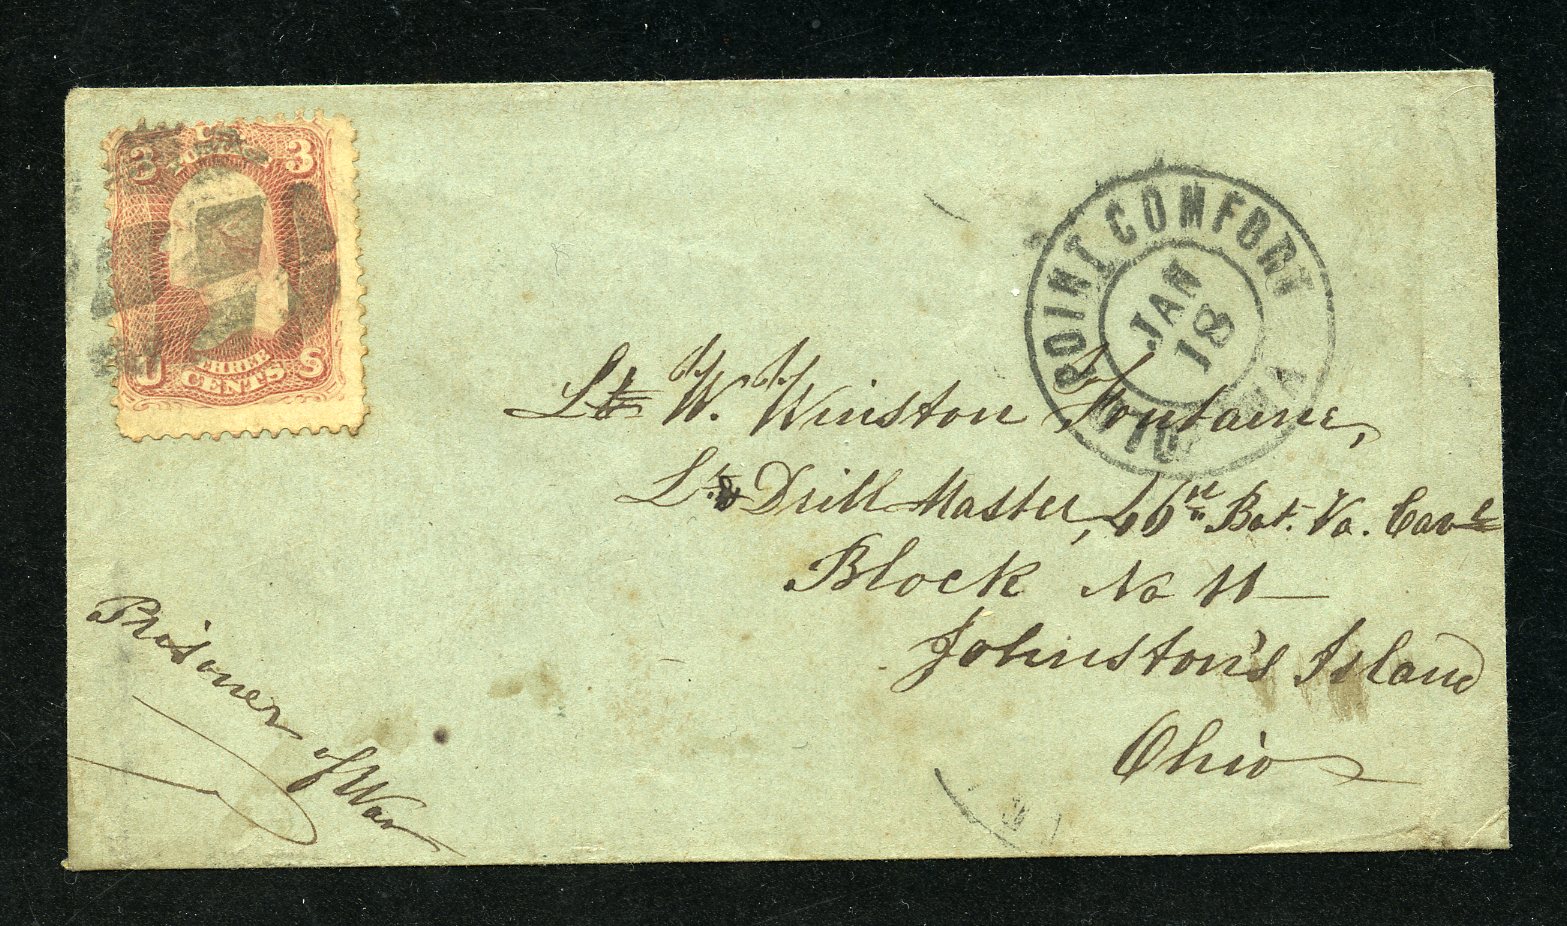 3 U.S. 3
POSTAGE
THREE
U CENTS S
OLD POINT COMFORT VA
JAN
18
Lt W. Winston Fontaine,
Lt & Drill Master, Bat. Va. Cavl
Block No 11
Johnston's Island
Ohio
Prisoner
of War